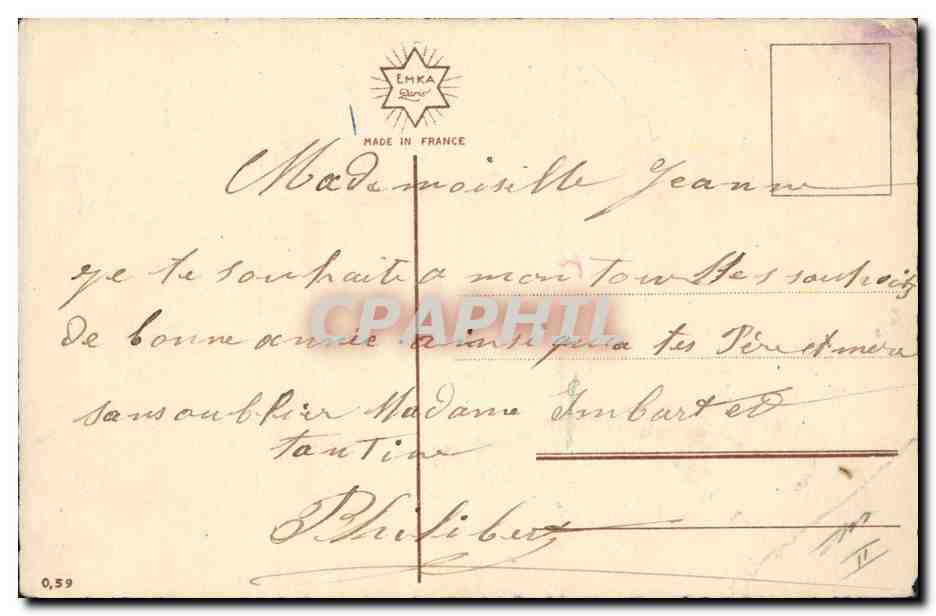 EMKA
Paris
MADE IN FRANCE
Mademoiselle Jeanne
je te souhaite a mon tour Mes souhaits
de bonne année ainsi qua tes Père et mère
sans oublier Madame Imbart et
tantine
Philibert
CPAPHIL
0,59